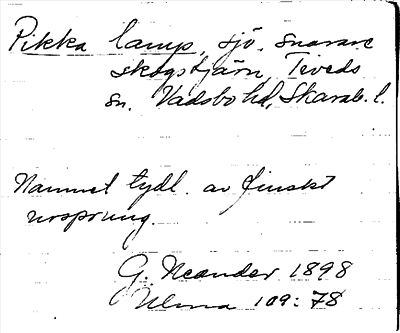 Pikka lamp, sjö, snarare
skogstjärn, Tiveds
sn. Vadsbo hd, Skarab. l.
Namnet tydl. av finskt
ursprung.
G. Neander 1898
Ulma 109:78